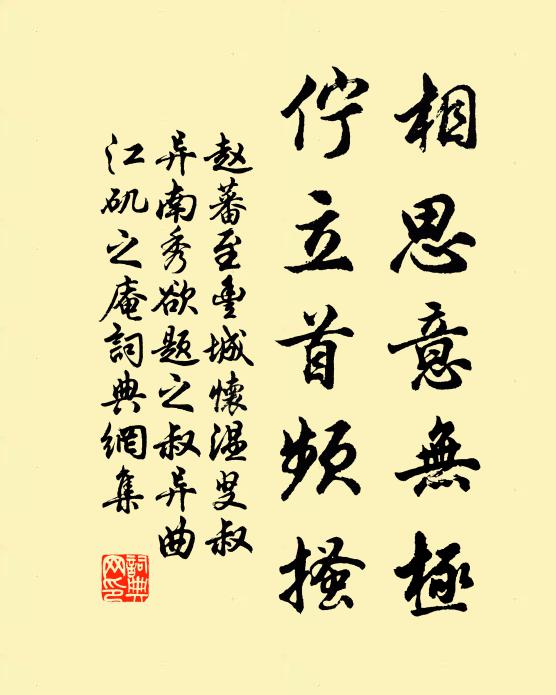 相思意無極
佇立首頻搔
赵蕃至豐城懷温叟叔
异南秀欲题之叔异曲
江矶之庵詞典網集
詞典
网印